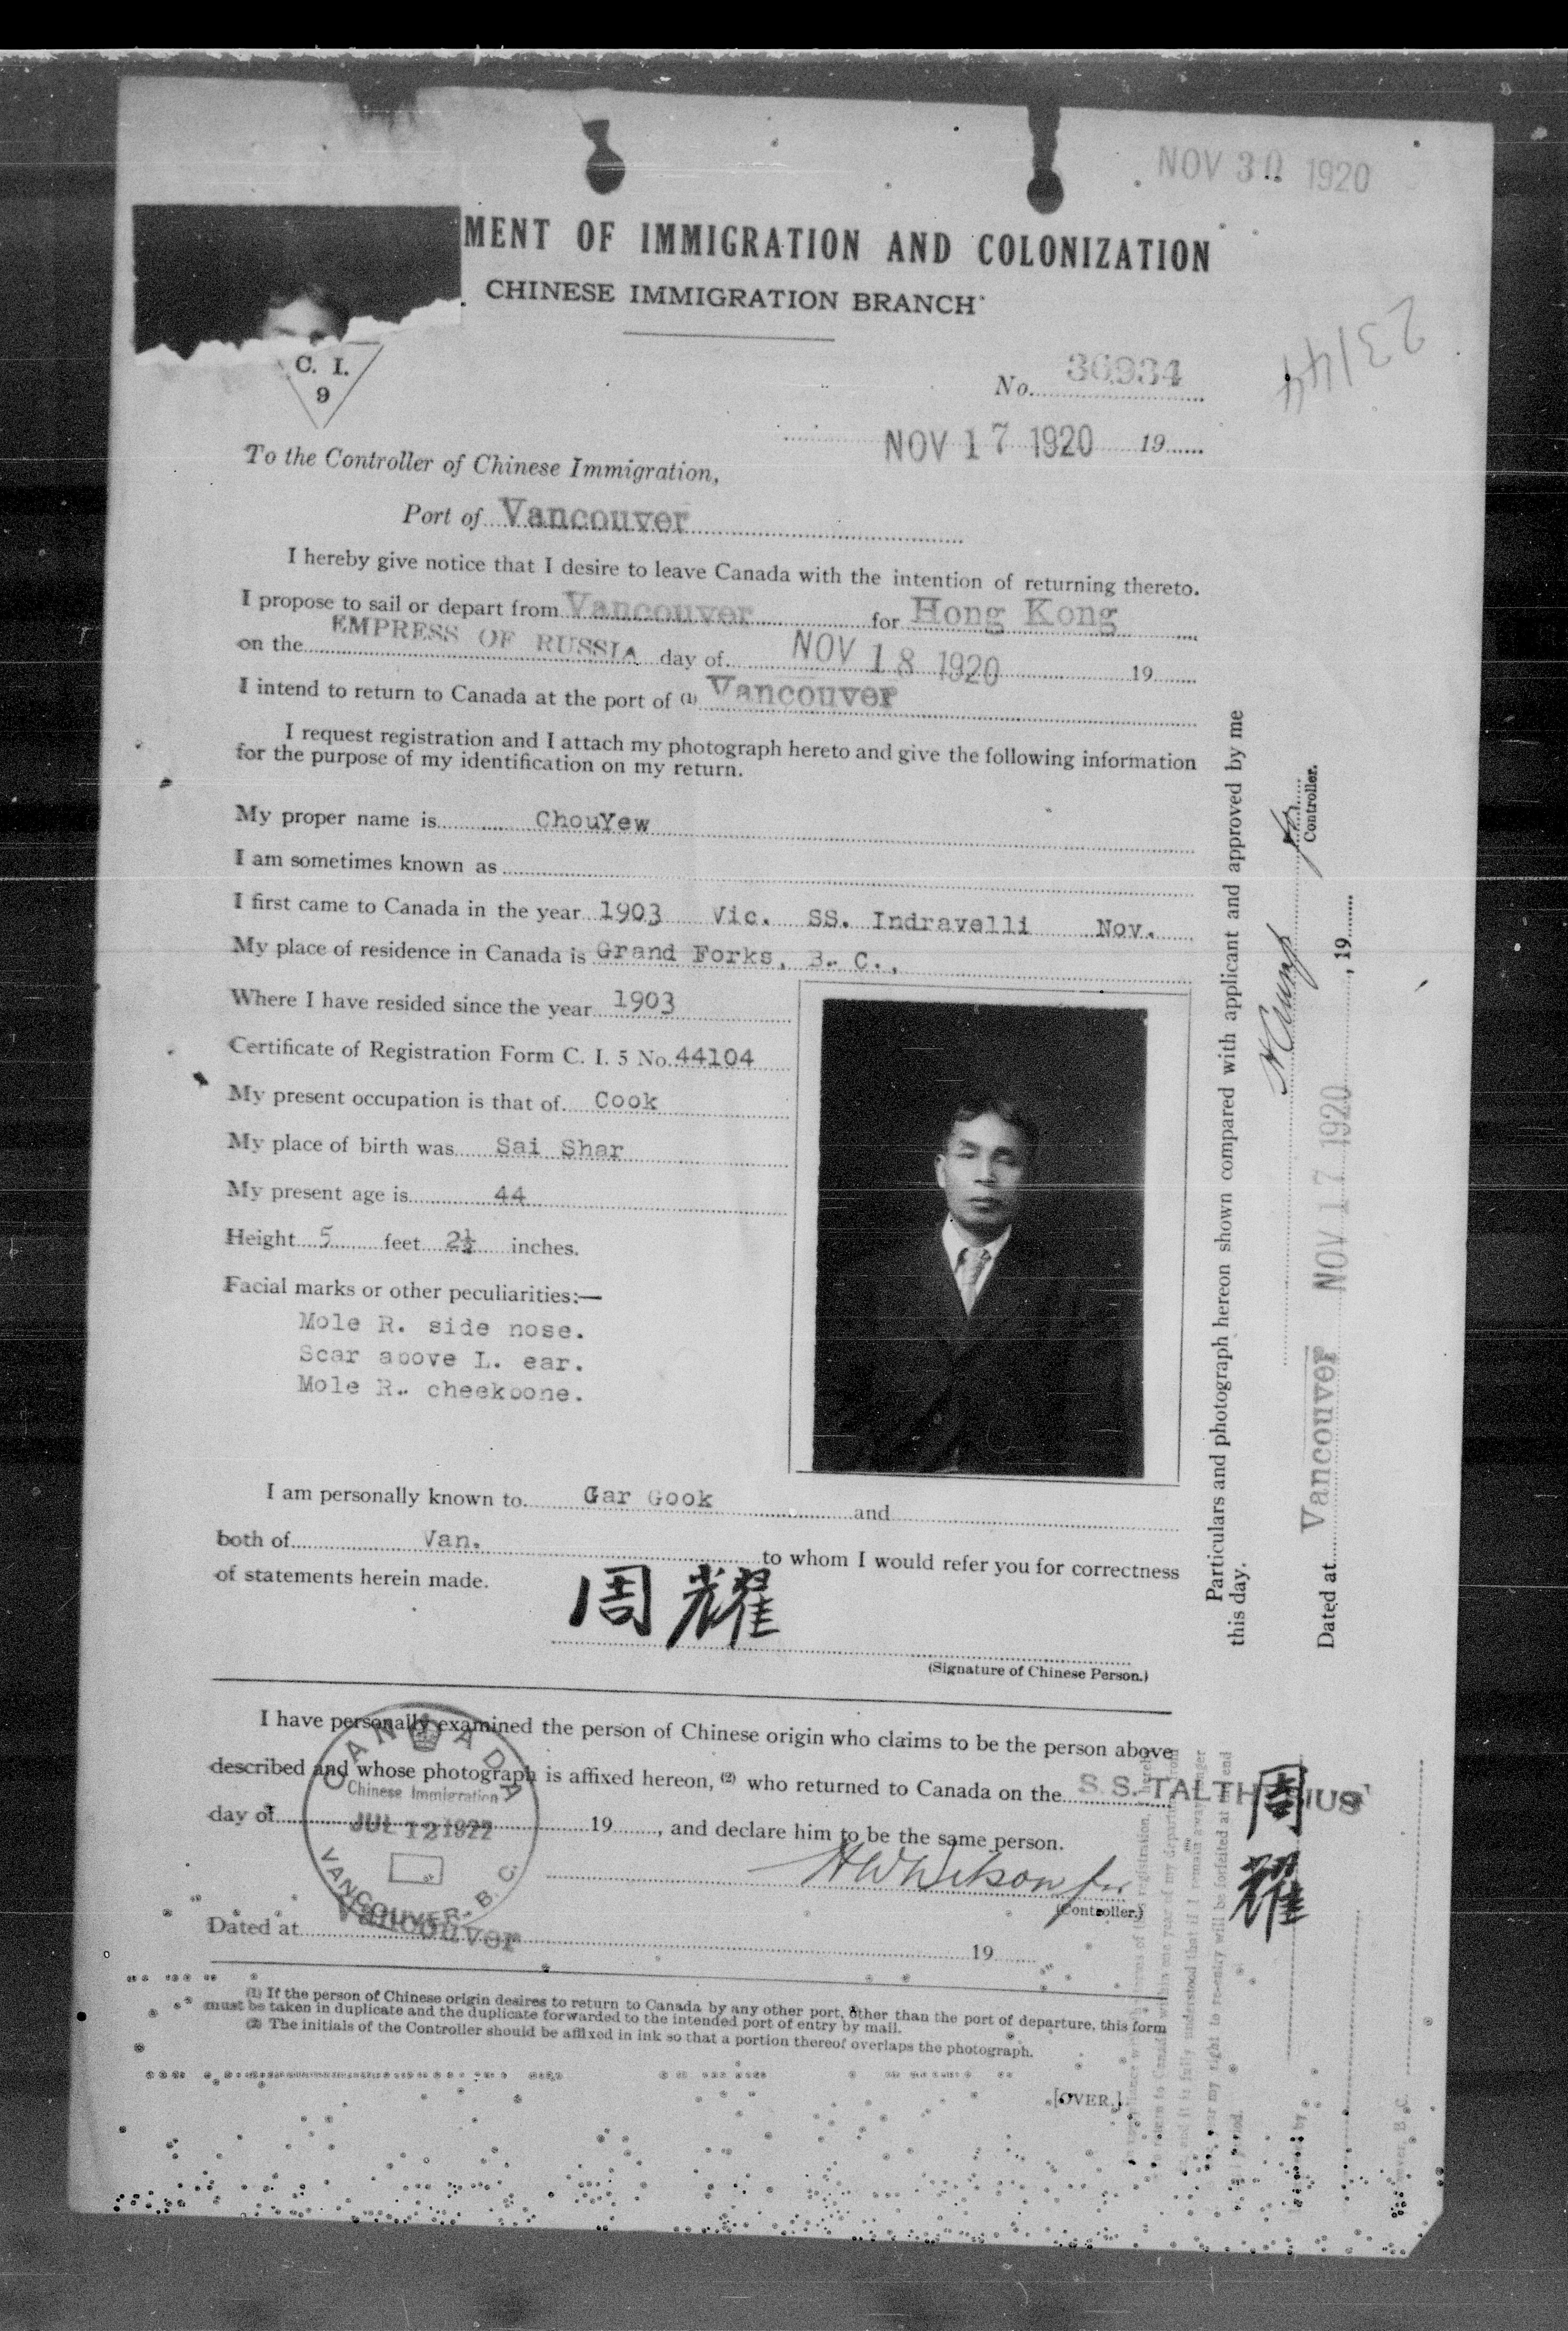 NOV 30 1920
MENT OF IMMIGRATION AND COLONIZATION
CHINESE IMMIGRATION BRANCH
23144
C. I.
9
No. 36934
NOV 17 1920 19
To the Controller of Chinese Immigration,
Port of Vancouver
I hereby give notice that I desire to leave Canada with the intention of returning thereto.
I propose to sail or depart from Vancouver for Hong Kong
on the EMPRESS OF RUSSIA day of NOV 18 1920 19
I intend to return to Canada at the port of (1) Vancouver
I request registration and I attach my photograph hereto and give the following information
for the purpose of my identification on my return.
My proper name is ChouYew
I am sometimes known as
I first came to Canada in the year 1903 Vic. SS. Indravelli Nov.
My place of residence in Canada is Grand Forks, B. C.,
Where I have resided since the year 1903
Certificate of Registration Form C. I. 5 No. 44104
My present occupation is that of Cook
My place of birth was Sai Shar
My present age is 44
Height 5 feet 2½ inches.
Facial marks or other peculiarities:—
Mole R. side nose.
Scar above L. ear.
Mole R. cheekbone.
I am personally known to Gar Gook and
both of Van. to whom I would refer you for correctness
of statements herein made.
周耀
(Signature of Chinese Person.)
I have personally examined the person of Chinese origin who claims to be the person above
described and whose photograph is affixed hereon, (2) who returned to Canada on the S.S. TALTHYBIUS
day of 19, and declare him to be the same person.
CANADA
Chinese Immigration
JUL 12 1922
VANCOUVER. B. C.
(Controller.)
Dated at Vancouver 19
(1) If the person of Chinese origin desires to return to Canada by any other port, other than the port of departure, this form
must be taken in duplicate and the duplicate forwarded to the intended port of entry by mail.
(2) The initials of the Controller should be affixed in ink so that a portion thereof overlaps the photograph.
[OVER.]
Particulars and photograph hereon shown compared with applicant and approved by me
this day.
Controller.
Dated at Vancouver NOV 17 1920, 19
周耀